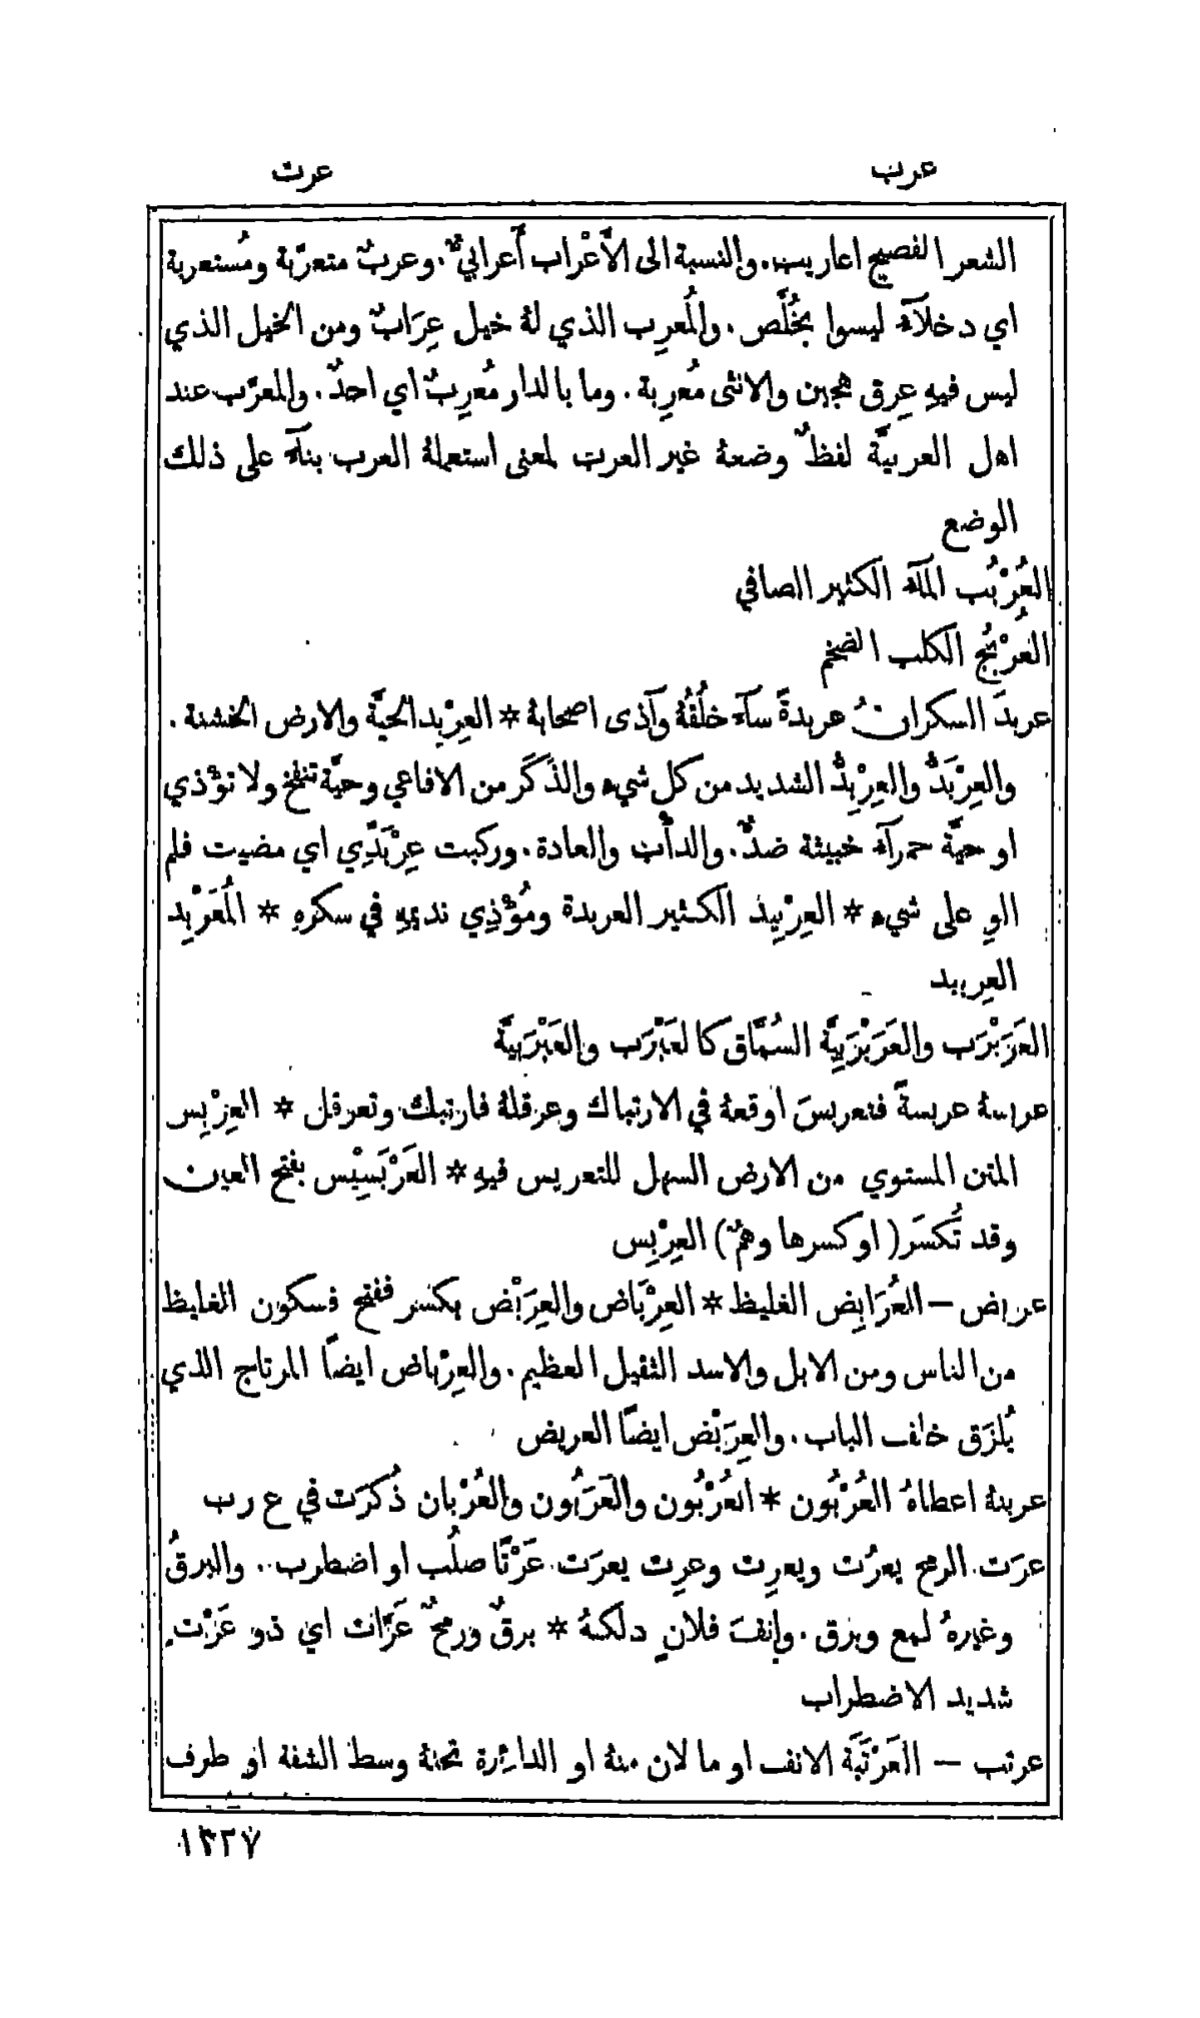 عرب
عرت
الشعر الفصيح اعاريب. والنسبة الى الأَعْراب أَعرابيٌّ. وعربٌ متعرّبة ومُستعربة
اي دخلآء ليسوا بخُلَّص. والمُعرِب الذي لهُ خيل عِرَابٌ ومن الخيل الذي
ليس فيهِ عِرق هجين والانثى مُعرِبة. وما بالدار مُعرِبٌ اي احدٌ. والمعرَّب عند
اهل العربيَّة لفظٌ وضعهُ غير العرب لمعنى استعملهُ العرب بنآء على ذلك
الوضع
العُرْبُب المآء الكثير الصافي
العُرْبُج الكلب الضخم
عربدَ السكرانُ عربدةً سآء خُلُقُهُ وآذى اصحابهُ * العِرْبِد الحيَّة والارض الخشنة.
والعِرْبَدُّ والعِرْبِدُّ الشديد من كل شيء والذَكَر من الافاعي وحيَّة تنفخ ولا تؤْذي
او حيَّة حمرآء خبيثة ضدٌّ. والدأْب والعادة. وركبت عِرْبَدِّي اي مضيت فلم
الوِ على شيء * العِرْبِيد الكثير العربدة ومُؤْذِي نديمهِ في سكرهِ * المُعَرْبِد
العِربيد
العَرَبْرَب والعَرَبْرَبِيَّة السُمَّاق كالعَبْرَب والعَبْرَبيَّة
عربسهُ عربسةً فتعربسَ اوقعهُ في الارتباك وعرقلهُ فارتبك وتعرقل * العِرْبِس
المتن المستوي من الارض السهل للتعريس فيهِ * العَرْبَسِيْس بفتح العين
وقد تُكسَر (او كسرها وهمٌ) العِرْبِس
عربض — العُرَابِض الغليظ * العِرْبَاض والعِرَبْض بكسر ففتح فسكون الغليظ
من الناس ومن الابل والاسد الثقيل العظيم. والعِرْباض ايضًا المرتاج الذي
يُلزَق خلف الباب. والعِرَبْض ايضًا العريض
عربنهُ اعطاهُ العُرْبُون * العُرْبُون والعَرَبُون والعُرْبان ذُكرَت في ع ر ب
عرَت الرمح يعرُت ويعرِت وعرِت يعرَت عَرْتًا صلُب او اضطرب.. والبرقُ
وغيرهُ لمع وبرق. وانفَ فلانٍ دلكهُ * برقٌ ورمحٌ عَرَّات اي ذو عَرْتٍ
شديد الاضطراب
عرتب — العَرْتَبَة الانف او ما لان منهُ او الدائرة تحتهُ وسط الشفة او طرف
١٣٢٧